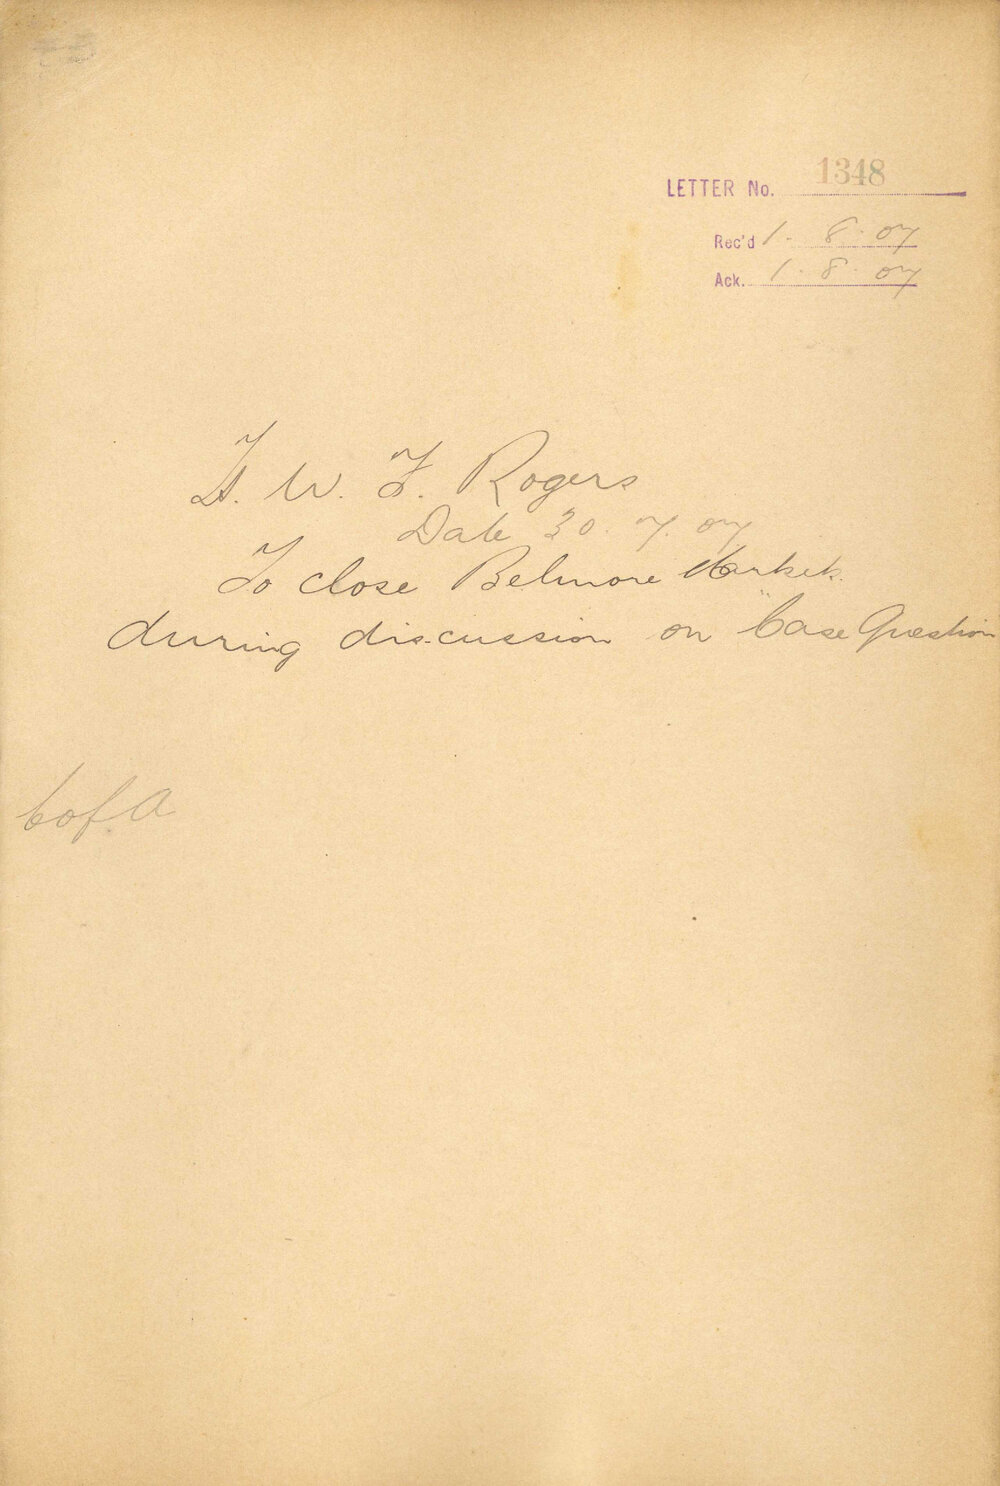 LETTER No. 1348
Rec'd 1. 8. 07
Ack. 1. 8. 07
W. F. Rogers
Date 30. 7. 07
To close Belmore Markets
during discussion on "Case Question
C of A